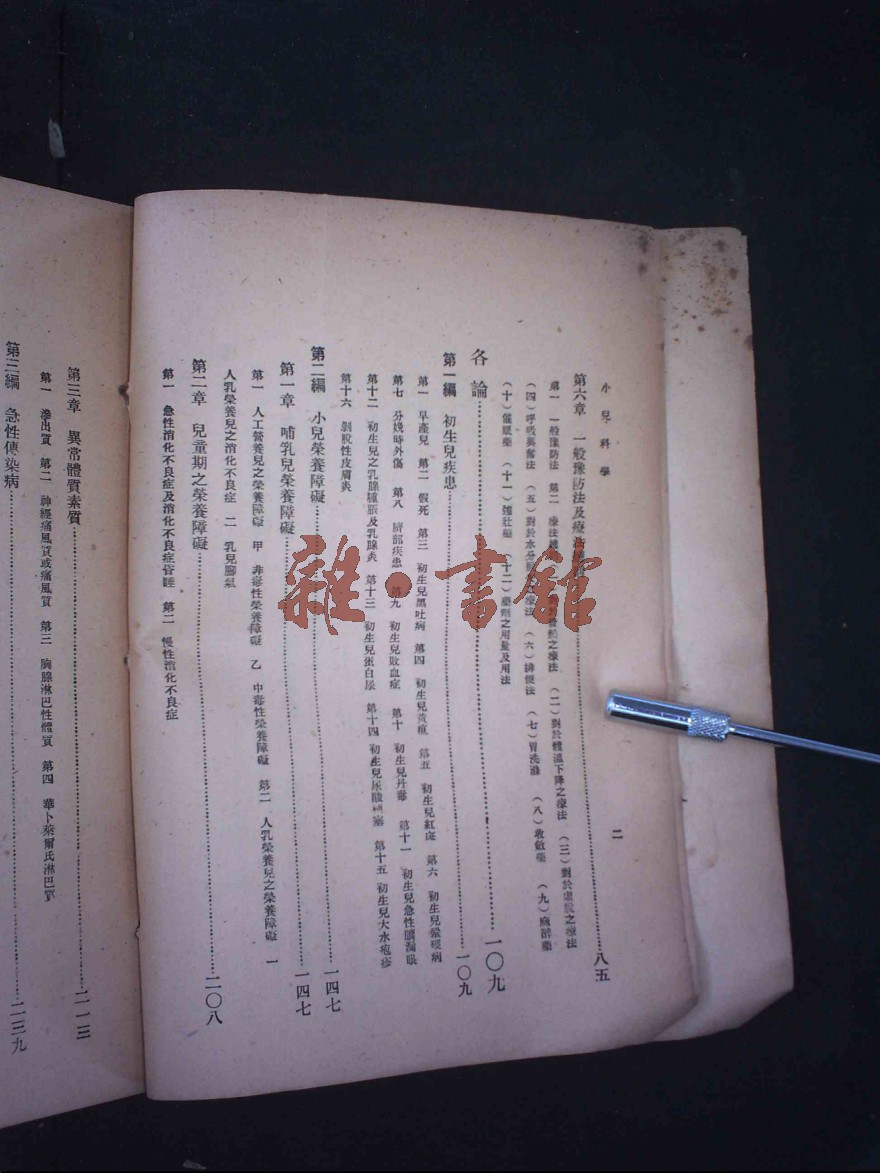 小兒科學
二
第六章 一般豫防法及療 八五
第一 一般豫防法 第二 療法 之療法 (二)對於體溫下降之療法 (三)對於虛脫之療法
(四)呼吸興奮法 (五)對於水分 療法 (六)排便法 (七)胃洗滌 (八)收斂藥 (九)麻醉藥
(十)催眠藥 (十一)強壯藥 (十二)藥劑之用量及用法
各論 一〇九
第一編 初生兒疾患 一〇九
第一 早產兒 第二 假死 第三 初生兒黑吐病 第四 初生兒黃疸 第五 初生兒紅斑 第六 初生兒 病
第七 分娩時外傷 第八 臍部疾患 第九 初生兒敗血症 第十 初生兒丹毒 第十一 初生兒急性膿漏眼
第十二 初生兒之乳腺腫脹及乳腺炎 第十三 初生兒蛋白尿 第十四 初生兒尿酸梗塞 第十五 初生兒大水疱疹
第十六 剝脫性皮膚炎
第二編 小兒榮養障礙 一四七
第一章 哺乳兒榮養障礙 一四七
第一 人工營養兒之榮養障礙 甲 非毒性榮養障礙 乙 中毒性榮養障礙 第二 人乳榮養兒之榮養障礙 一
人乳榮養兒之消化不良症 二 乳兒腳氣
第二章 兒童期之榮養障礙 二〇八
第一 急性消化不良症及消化不良症昏睡 第二 慢性消化不良症
第三章 異常體質素質 二一三
第一 滲出質 第二 神經痛風質或痛風質 第三 胸腺淋巴性體質 第四 華卜萊爾氏淋巴質
第三編 急性傳染病 二三九
雜·書館